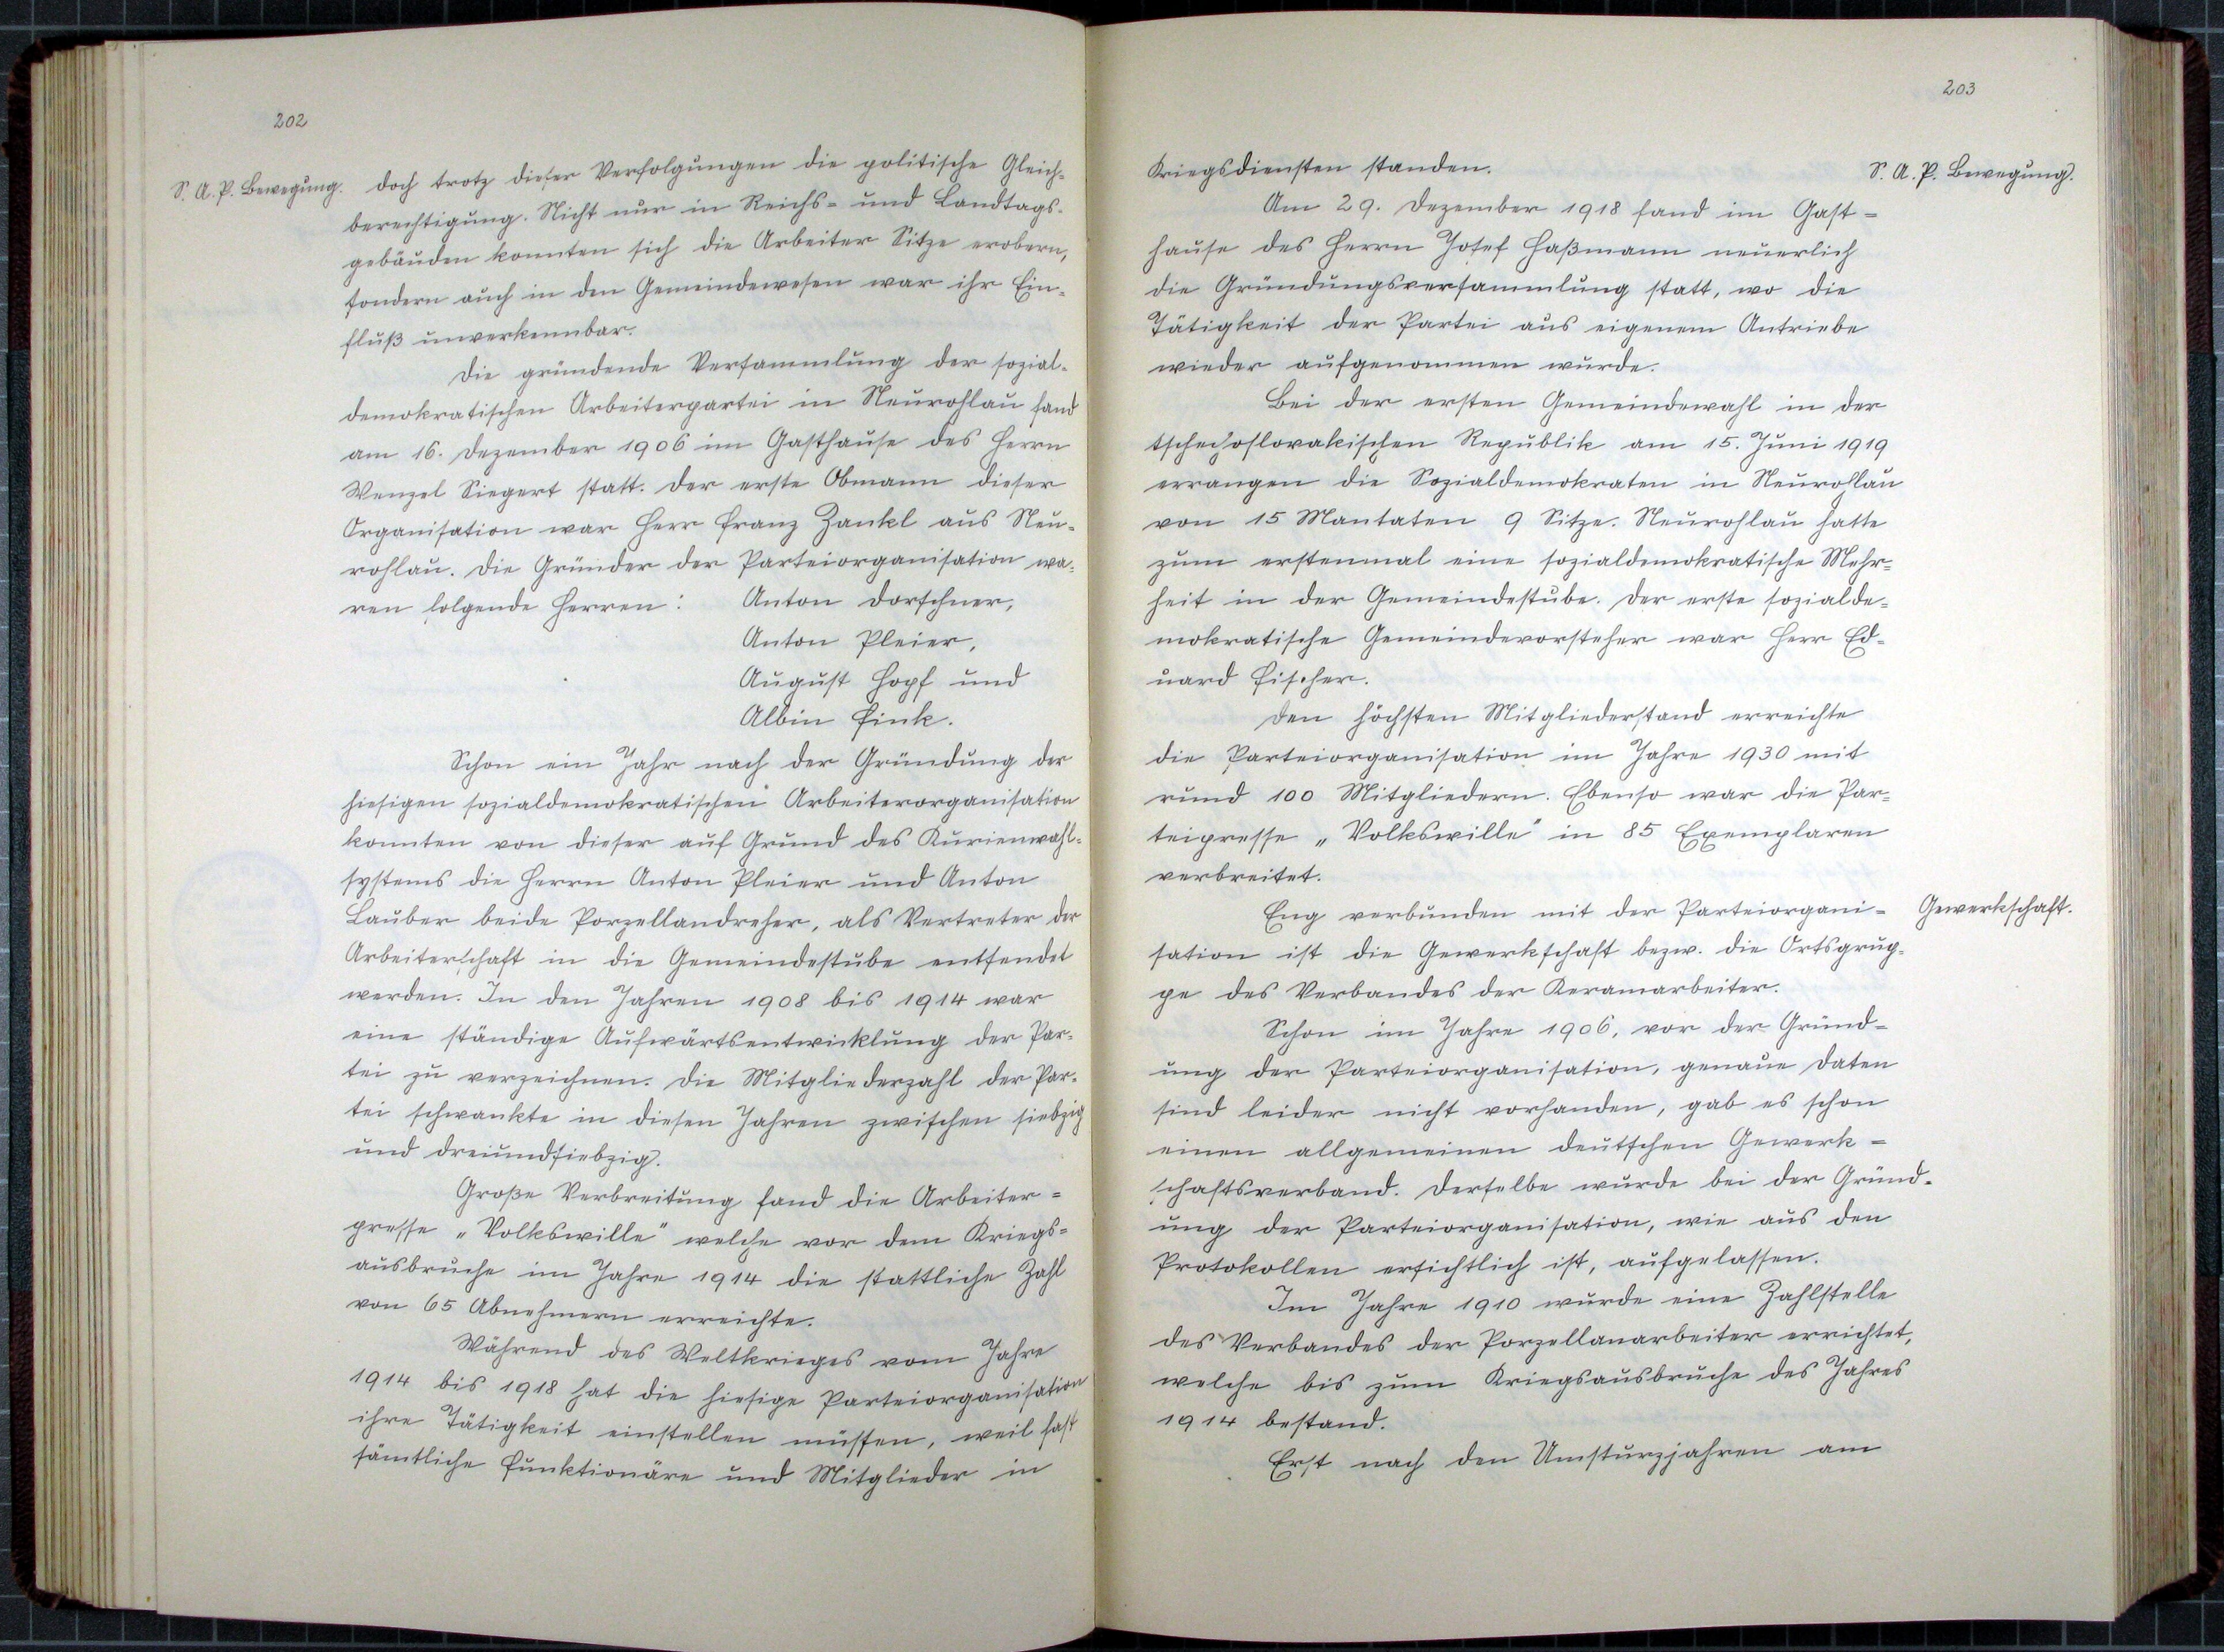 202
S. A. P. Bewegung.
doch trotz dieser Verfolgungen die politische Gleich=
berechtigung. Nicht nur in Reichs= und Landtags=
gebäuden konnten sich die Arbeiter Sitze erobern,
sondern auch in den Gemeindewesen war ihr Ein=
fluß unverkennbar.
Die gründende Versammlung der sozial=
demokratischen Arbeiterpartei in Neurohlau fand
am 16. Dezember 1906 im Gasthause des Herrn
Wenzel Siegert statt. Der erste Obmann dieser
Organisation war Herr Franz Zankl aus Neu=
rohlau. Die Gründer der Parteiorganisation wa=
ren folgende Herren: Anton Dorschner,
Anton Pleier,
August Hopf und
Albin Fink.
Schon ein Jahr nach der Gründung der
hiesigen sozialdemokratischen Arbeiterorganisation
konnten von dieser auf Grund des Kurienwahl=
systems die Herrn Anton Pleier und Anton
Lauber beide Porzellandreher, als Vertreter der
Arbeiterschaft in die Gemeindestube entsendet
werden. In den Jahren 1908 bis 1914 war
eine ständige Aufwärtsentwicklung der Par=
tei zu verzeichnen. Die Mitgliederzahl der Par=
tei schwankte in diesen Jahren zwischen siebzig
und dreiundsiebzig.
Große Verbreitung fand die Arbeiter=
presse „Volkswille" welche vor dem Kriegs=
ausbruche im Jahre 1914 die stattliche Zahl
von 65 Abnehmern erreichte.
Während des Weltkrieges vom Jahre
1914 bis 1918 hat die hiesige Parteiorganisation
ihre Tätigkeit einstellen müssen, weil fast
sämtliche Funktionäre und Mitglieder in
203
S. A. P. Bewegung.
Kriegsdiensten standen.
Am 29. Dezember 1918 fand im Gast=
hause des Herrn Josef Haßmann neuerlich
die Gründungsversammlung statt, wo die
Tätigkeit der Partei aus eigenem Antriebe
wieder aufgenommen wurde.
Bei der ersten Gemeindewahl in der
tschechoslovakischen Republik am 15. Juni 1919
errangen die Sozialdemokraten in Neurohlau
von 15 Mantaten 9 Sitze. Neurohlau hatte
zum erstenmal eine sozialdemokratische Mehr=
heit in der Gemeindestube. Der erste sozialde=
mokratische Gemeindevorsteher war Herr Ed=
uard Fischer.
Den höchsten Mitgliederstand erreichte
die Parteiorganisation im Jahre 1930 mit
rund 100 Mitgliedern. Ebenso war die Par=
teipresse „Volkswille" in 85 Exemplaren
verbreitet.
Eng verbunden mit der Parteiorgani=
Gewerkschaft.
sation ist die Gewerkschaft bezw. die Ortsgrup=
pe des Verbandes der Keramarbeiter.
Schon im Jahre 1906, vor der Gründ=
ung der Parteiorganisation, genaue Daten
sind leider nicht vorhanden, gab es schon
einen allgemeinen deutschen Gewerk=
schaftsverband. Derselbe wurde bei der Gründ=
ung der Parteiorganisation, wie aus den
Protokollen ersichtlich ist, aufgelassen.
Im Jahre 1910 wurde eine Zahlstelle
des Verbandes der Porzellanarbeiter errichtet,
welche bis zum Kriegsausbruche des Jahres
1914 bestand.
Erst nach den Umsturzjahren am